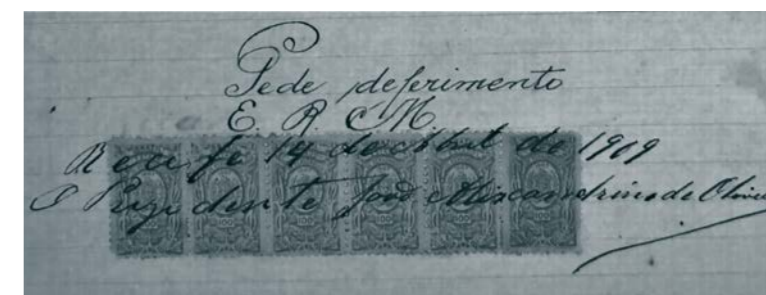 Pede deferimento
E. R. C. M.
Recife 14 de Abril de 1909
O Prezidente João Alixandrino de Olivei